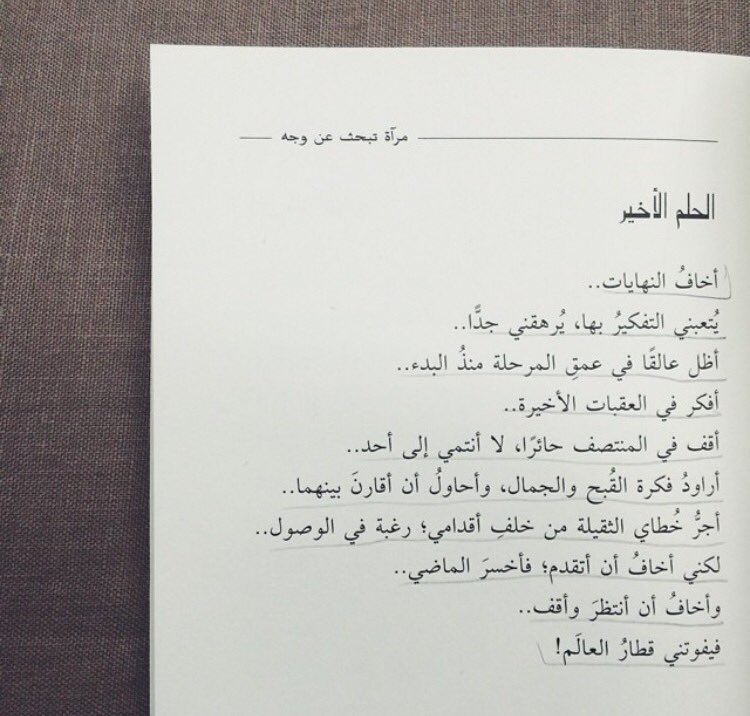 مرآة تبحث عن وجه
الحلم الأخير
أخافُ النهايات..
يُتعبني التفكيرُ بها، يُرهقني جدًّا..
أظل عالقًا في عمقِ المرحلة منذُ البدء..
أفكر في العقبات الأخيرة..
أقف في المنتصف حائرًا، لا أنتمي إلى أحد..
أراودُ فكرة القُبح والجمال، وأحاولُ أن أقارنَ بينهما..
أجرُّ خُطاي الثقيلة من خلفِ أقدامي؛ رغبة في الوصول..
لكني أخافُ أن أتقدم؛ فأخسرَ الماضي..
وأخافُ أن أنتظرَ وأقف..
فيفوتني قطارُ العالَم!